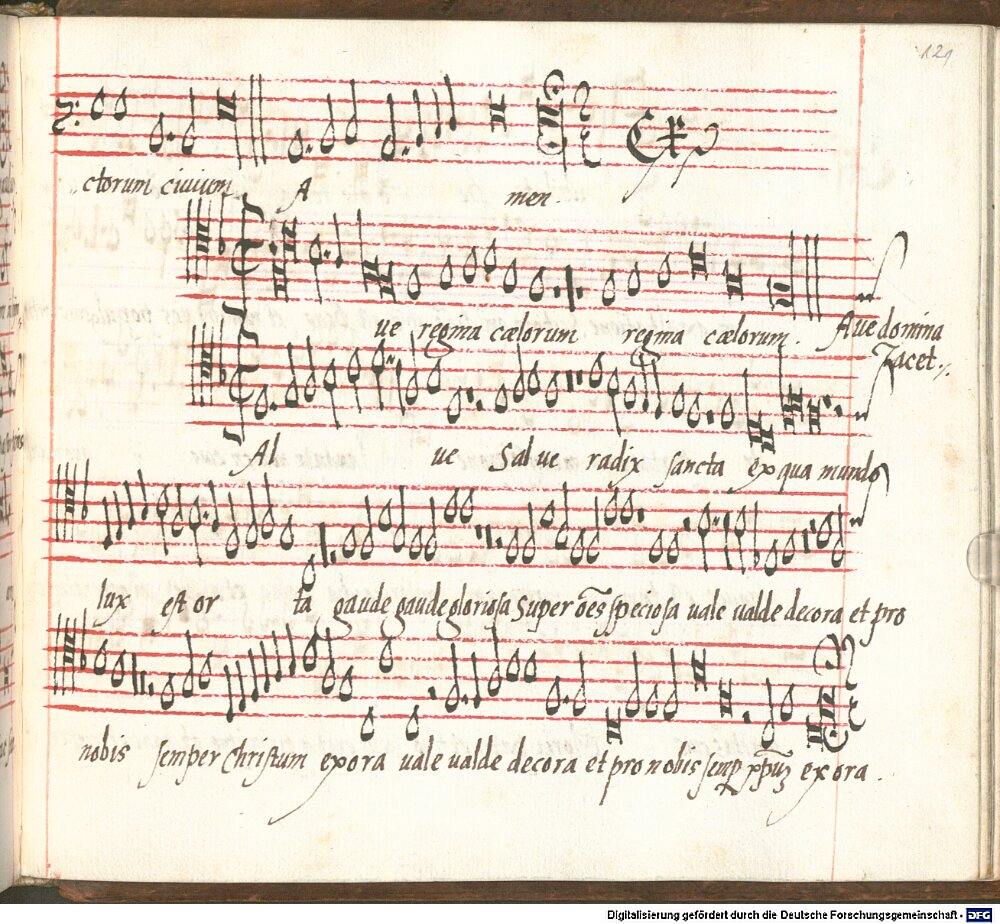 121
ctorum ciuium A men
ue regina cælorum regina cælorum . Aue domina
Tacet
Al ue Salue radix sancta ex qua mundo
lux est or ta gaude gaude gloriosa super oēs speciosa uale ualde decora et pro
nobis semper Christum exora uale ualde decora et pro nobis exora .
Digitalisierung gefördert durch die Deutsche Forschungsgemeinschaft - DFG